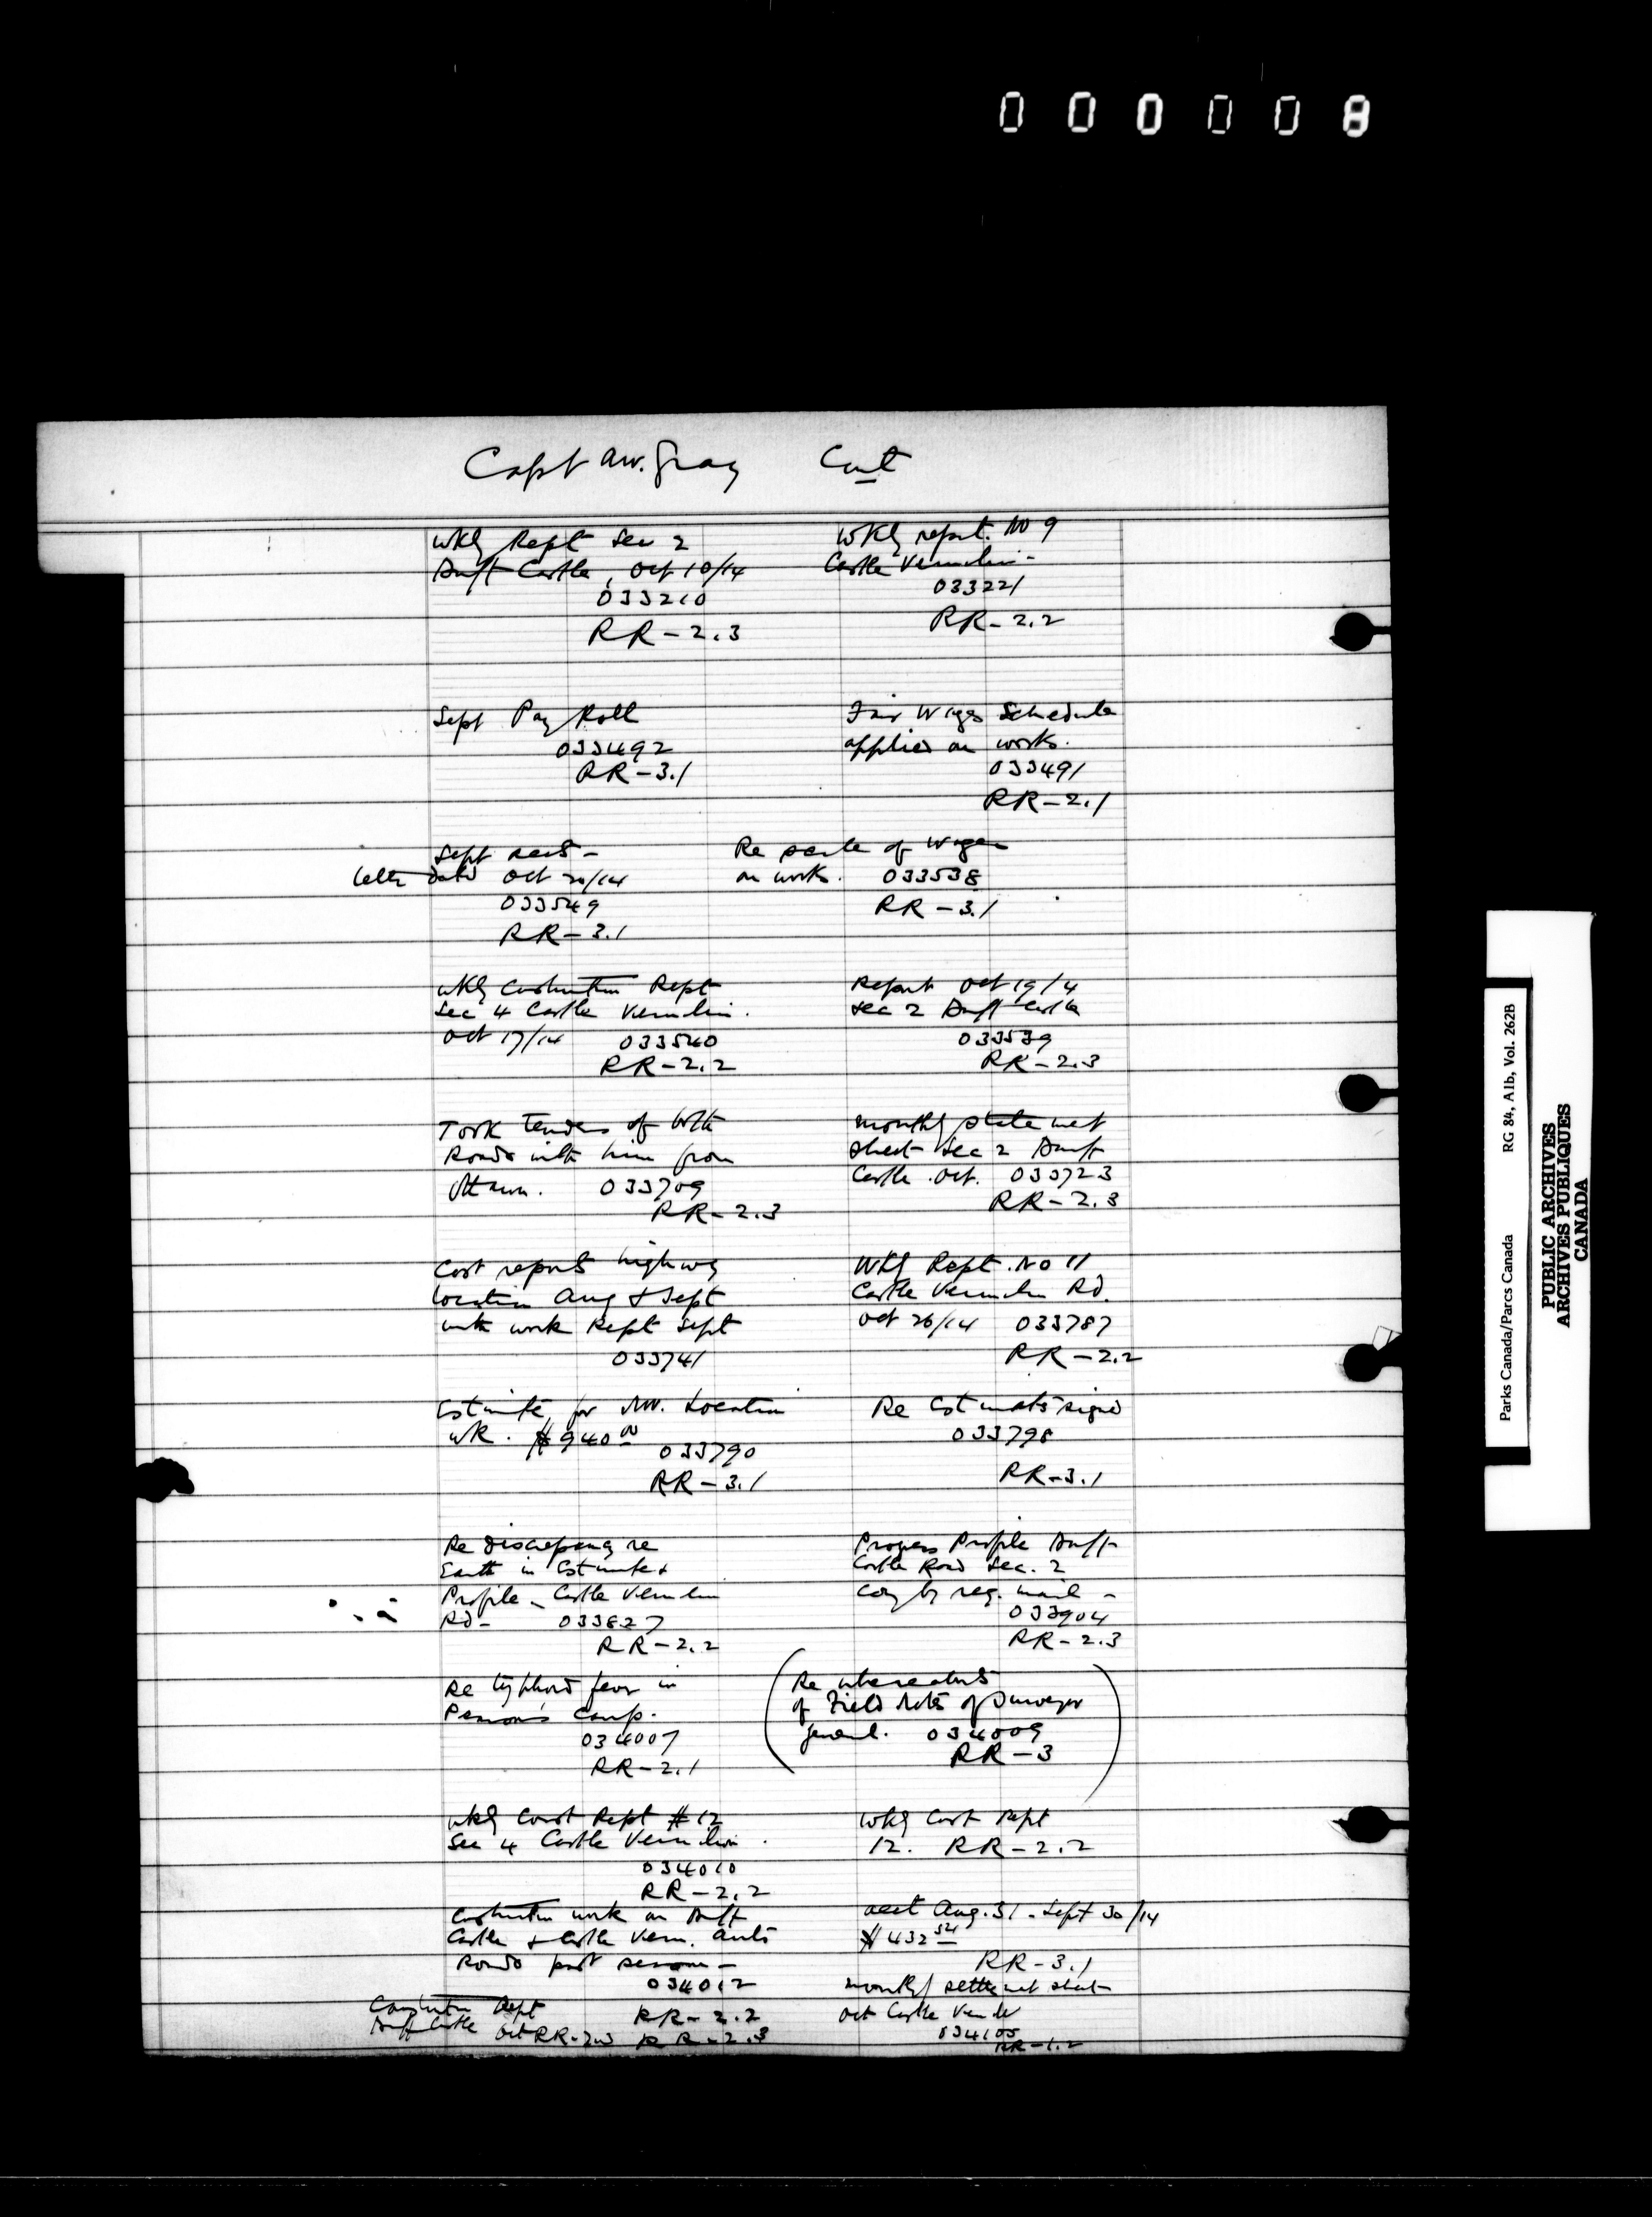 000008
Capt A.W. Gray Cont
Wkly Rept Sec 2
Banff Castle, Oct 10/14
033210
RR-2.3
Wkly report. No 9
Castle Vermilion-
033221
RR-2.2
Sept Pay Roll
033492
RR-3.1
Fair Wages Schedule
applied on works.
033491
RR-2.1
Sept accts-
letter dated Oct 20/14
033549
RR-3.1
Re scale of wages
on work. 033538
RR-3.1
Wkly Construction Rept
Sec 4 Castle Vermilion.
Oct 17/14 033540
RR-2.2
Report Oct 19/14
Sec 2 Banff Castle
033539
RR-2.3
Took tenders of both
Roads with him from
Ottawa. 033709
RR-2.3
Monthly statement
sheet Sec 2 Banff
Castle Oct. 033723
RR-2.3
Cost reports highway
location Aug & Sept
with work Rept Sept
033741
Wkly Rept. No 11
Castle Vermilion Rd.
Oct 26/14 033787
RR-2.2
Estimate for Location
wk. $940.00
033790
RR-3.1
Re Estimates signed
033798
RR-3.1
Re discrepancy re
Earth in Estimate &
Profile - Castle Vermilion
Rd- 033827
RR-2.2
Progress Profile Banff
Castle Road Sec. 2
by reg. mail -
033904
RR-2.3
Re typhoid fever in
camp.
034007
RR-2.1
(Re whereabouts
of Field Notes of Surveyor
General. 034009
RR-3)
Wkly Const Rept #12
Sec 4 Castle Vermilion.
034010
RR-2.2
Wkly Cost Rept
12. RR-2.2
Construction work on Banff
Castle & Castle Verm. Auto
Roads past season-
034012
RR-2.2
RR-2.3
Acct Aug. 31 - Sept 30/14
$432.54
RR-3.1
Monthly settlement sheet
Oct Castle
034105
RR-1.2
Construction Rept
Banff Castle Oct RR-2.3
Parks Canada/Parcs Canada RG 84, A1b, Vol. 262B
PUBLIC ARCHIVES
ARCHIVES PUBLIQUES
CANADA